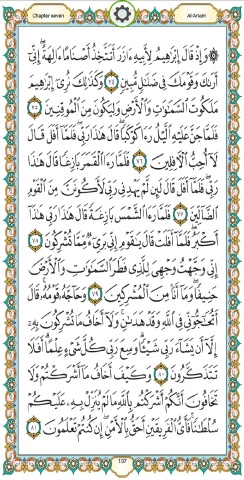 Chapter seven
Al-Anam
۞ وَإِذْ قَالَ إِبْرَٰهِيمُ لِأَبِيهِ ءَازَرَ أَتَتَّخِذُ أَصْنَامًا ءَالِهَةً إِنِّىٓ
أَرَىٰكَ وَقَوْمَكَ فِى ضَلَٰلٍ مُّبِينٍ ٧٤ وَكَذَٰلِكَ نُرِىٓ إِبْرَٰهِيمَ
مَلَكُوتَ ٱلسَّمَٰوَٰتِ وَٱلْأَرْضِ وَلِيَكُونَ مِنَ ٱلْمُوقِنِينَ ٧٥
فَلَمَّا جَنَّ عَلَيْهِ ٱلَّيْلُ رَءَا كَوْكَبًا قَالَ هَٰذَا رَبِّى فَلَمَّآ أَفَلَ قَالَ
لَآ أُحِبُّ ٱلْءَافِلِينَ ٧٦ فَلَمَّا رَءَا ٱلْقَمَرَ بَازِغًا قَالَ هَٰذَا
رَبِّى فَلَمَّآ أَفَلَ قَالَ لَئِن لَّمْ يَهْدِنِى رَبِّى لَأَكُونَنَّ مِنَ ٱلْقَوْمِ
ٱلضَّآلِّينَ ٧٧ فَلَمَّا رَءَا ٱلشَّمْسَ بَازِغَةً قَالَ هَٰذَا رَبِّى هَٰذَآ
أَكْبَرُ فَلَمَّآ أَفَلَتْ قَالَ يَٰقَوْمِ إِنِّى بَرِىٓءٌ مِّمَّا تُشْرِكُونَ ٧٨
إِنِّى وَجَّهْتُ وَجْهِىَ لِلَّذِى فَطَرَ ٱلسَّمَٰوَٰتِ وَٱلْأَرْضَ
حَنِيفًا وَمَآ أَنَا۠ مِنَ ٱلْمُشْرِكِينَ ٧٩ وَحَآجَّهُۥ قَوْمُهُۥ قَالَ
أَتُحَٰٓجُّوٓنِّى فِى ٱللَّهِ وَقَدْ هَدَىٰنِ وَلَآ أَخَافُ مَا تُشْرِكُونَ بِهِۦٓ
إِلَّآ أَن يَشَآءَ رَبِّى شَيْـًٔا وَسِعَ رَبِّى كُلَّ شَىْءٍ عِلْمًا أَفَلَا
تَتَذَكَّرُونَ ٨٠ وَكَيْفَ أَخَافُ مَآ أَشْرَكْتُمْ وَلَا
تَخَافُونَ أَنَّكُمْ أَشْرَكْتُم بِٱللَّهِ مَا لَمْ يُنَزِّلْ بِهِۦ عَلَيْكُمْ
سُلْطَٰنًا فَأَىُّ ٱلْفَرِيقَيْنِ أَحَقُّ بِٱلْأَمْنِ إِن كُنتُمْ تَعْلَمُونَ ٨١
137